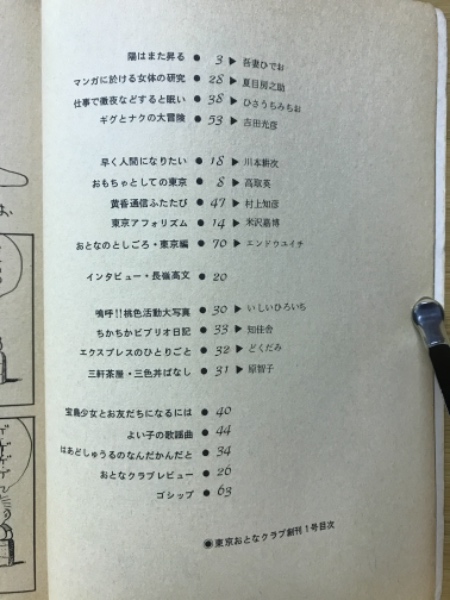 陽はまた昇る ● 3 ▶ 吾妻ひでお
マンガに於ける女体の研究 ● 28 ▶ 夏目房之助
仕事で徹夜などすると眠い ● 38 ▶ ひさうちみちお
ギグとナクの大冒険 ● 53 ▶ 吉田光彦
早く人間になりたい ● 18 ▶ 川本耕次
おもちゃとしての東京 ● 8 ▶ 高取英
黄香通信ふたたび ● 47 ▶ 村上知彦
東京アフォリズム ● 14 ▶ 米沢嘉博
おとなのとしごろ・東京編 ● 70 ▶ エンドウユイチ
インタビュー・長嶺高文 ● 20
嗚呼!!桃色活動大写真 ● 30 ▶ いしいひろいち
ちかちかビブリオ日記 ● 33 ▶ 知佳舎
エクスプレスのひとりごと ● 32 ▶ どくだみ
三軒茶屋・三色丼ばなし ● 31 ▶ 原智子
宝島少女とお友だちになるには ● 40
よい子の歌謡曲 ● 44
はあどしゅうるのなんだかんだと ● 34
おとなクラブレビュー ● 26
ゴシップ ● 63
◉東京おとなクラブ創刊1号目次